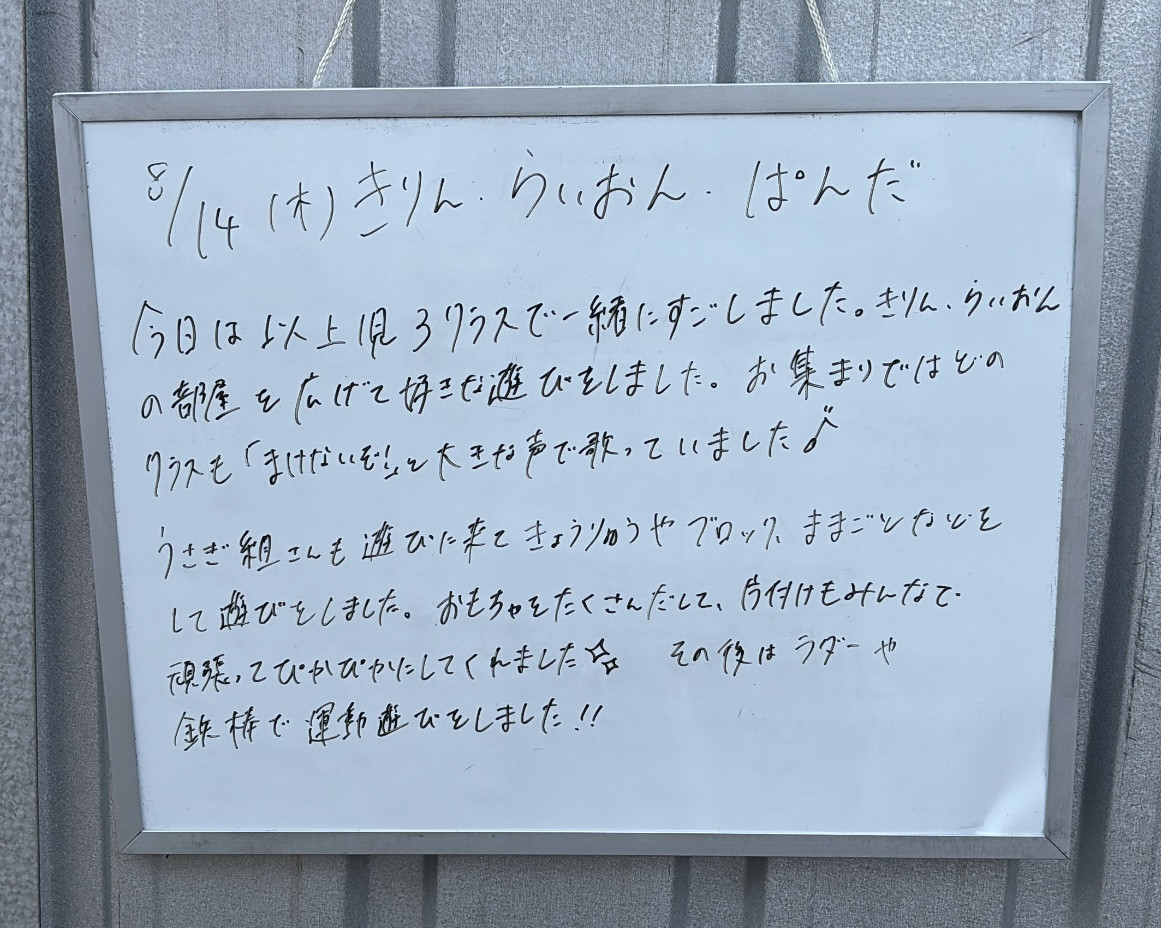 8/14 (木) きりん・らいおん・ぱんだ
今日は以上児3クラスで一緒にすごしました。きりん、らいおん
の部屋を広げて好きな遊びをしました。お集まりではどの
クラスも「まけないぞ!」と大きな声で歌っていました♪
うさぎ組さんも遊びに来てきょうりゅうやブロック、ままごとなどを
して遊びをしました。おもちゃをたくさんだして、片付けもみんなで
頑張ってぴかぴかにしてくれました☆☆ その後はラダーや
鉄棒で運動遊びをしました!!